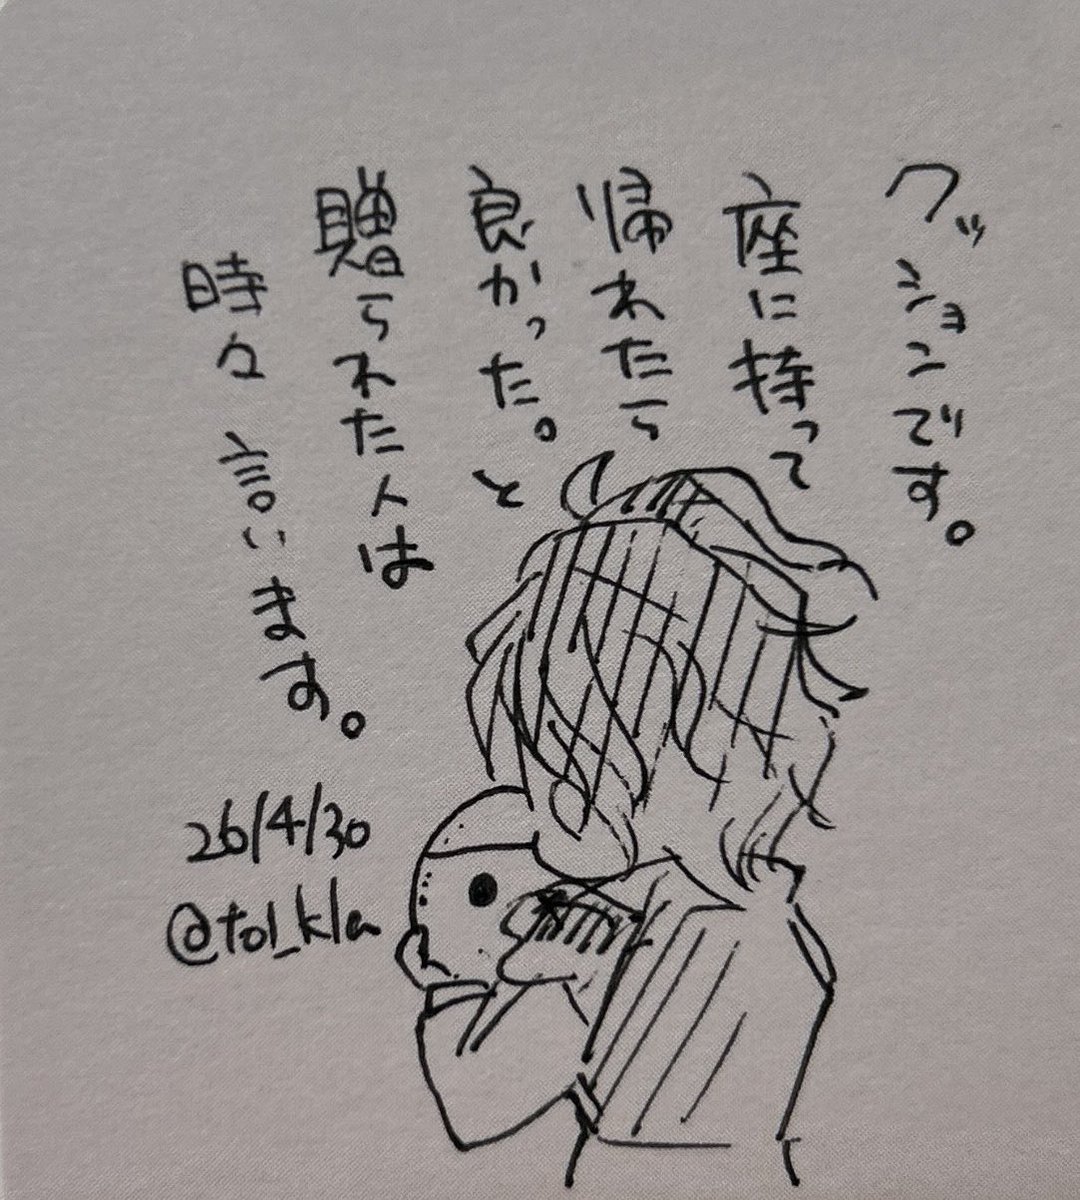 クッションです。
座に持って
帰れたら
良かった。と
贈られた人は
時々言います。
26/4/30
@tol_kla